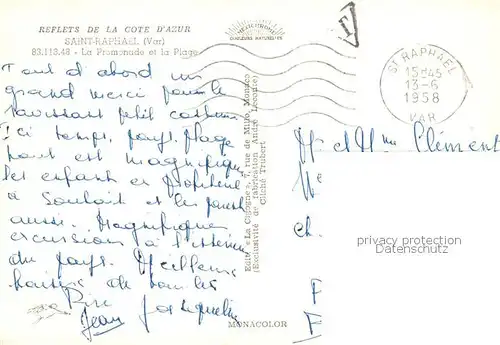 REFLETS DE LA COTE D'AZUR
SAINT-RAPHAEL (Var)
83.118.48 - La Promenade et la Plage
MEXICHROME
COULEURS NATURELLES
T
ST RAPHAEL
15H45
13-6
1958
VAR
Tout d'abord un
grand merci pour le
ravissant petit costume
Ici temps, pays, plage
tout est magnifique
les enfants en profitent
à souhait et les parents
aussi. Magnifiques
excursions à l'intérieur
du pays. Meilleurs
baisers de tous les
Jean Jacqueline
Edit. « La Cigogne », 7, rue de Milo, Monaco
(Exclusivité de fabrication André Leconte)
Cliché Trubert
MONACOLOR
M et Mme Clément
ch.
F
F
privacy protection
Datenschutz